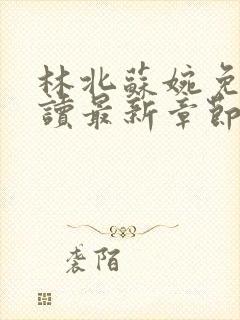 林北蘇婉免
讀最新章節
袭陌